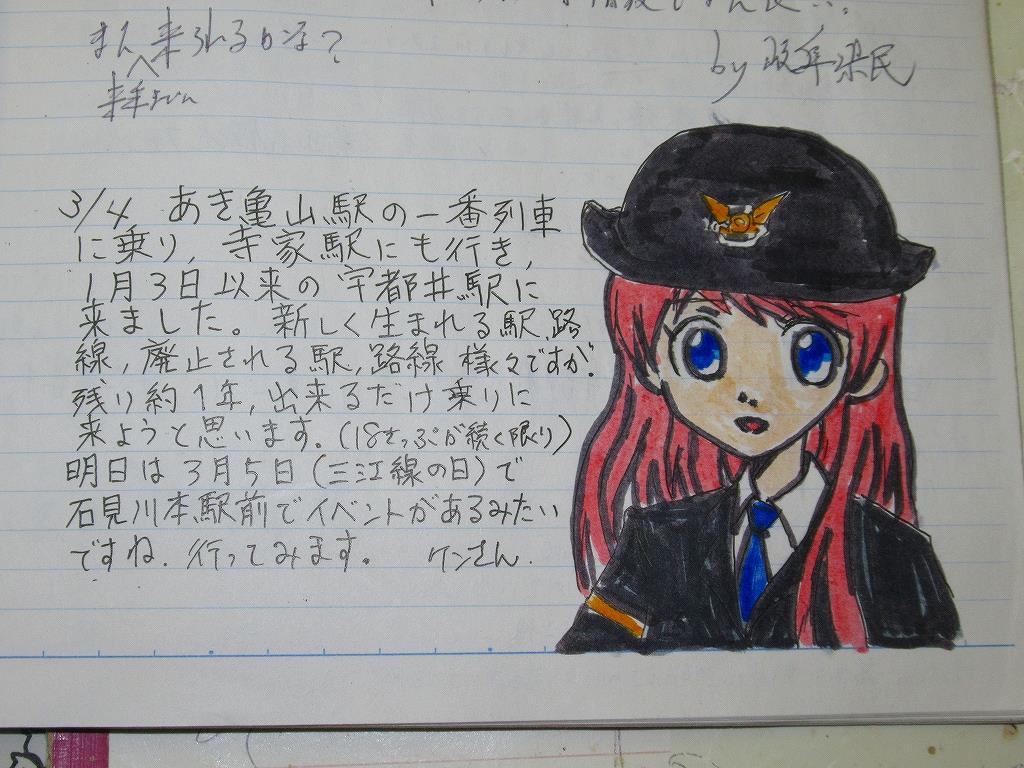 また来られるかな?
by 岐阜県民
3/4 あき亀山駅の一番列車
に乗り, 寺家駅にも行き,
1月3日以来の宇都井駅に
来ました。新しく生まれる駅,路
線,廃止される駅,路線 様々ですが.
残り約1年,出来るだけ乗りに
来ようと思います.(18きっぷが続く限り)
明日は3月5日(三江線の日)で
石見川本駅前でイベントがあるみたい
ですね.行ってみます. ケンさん.